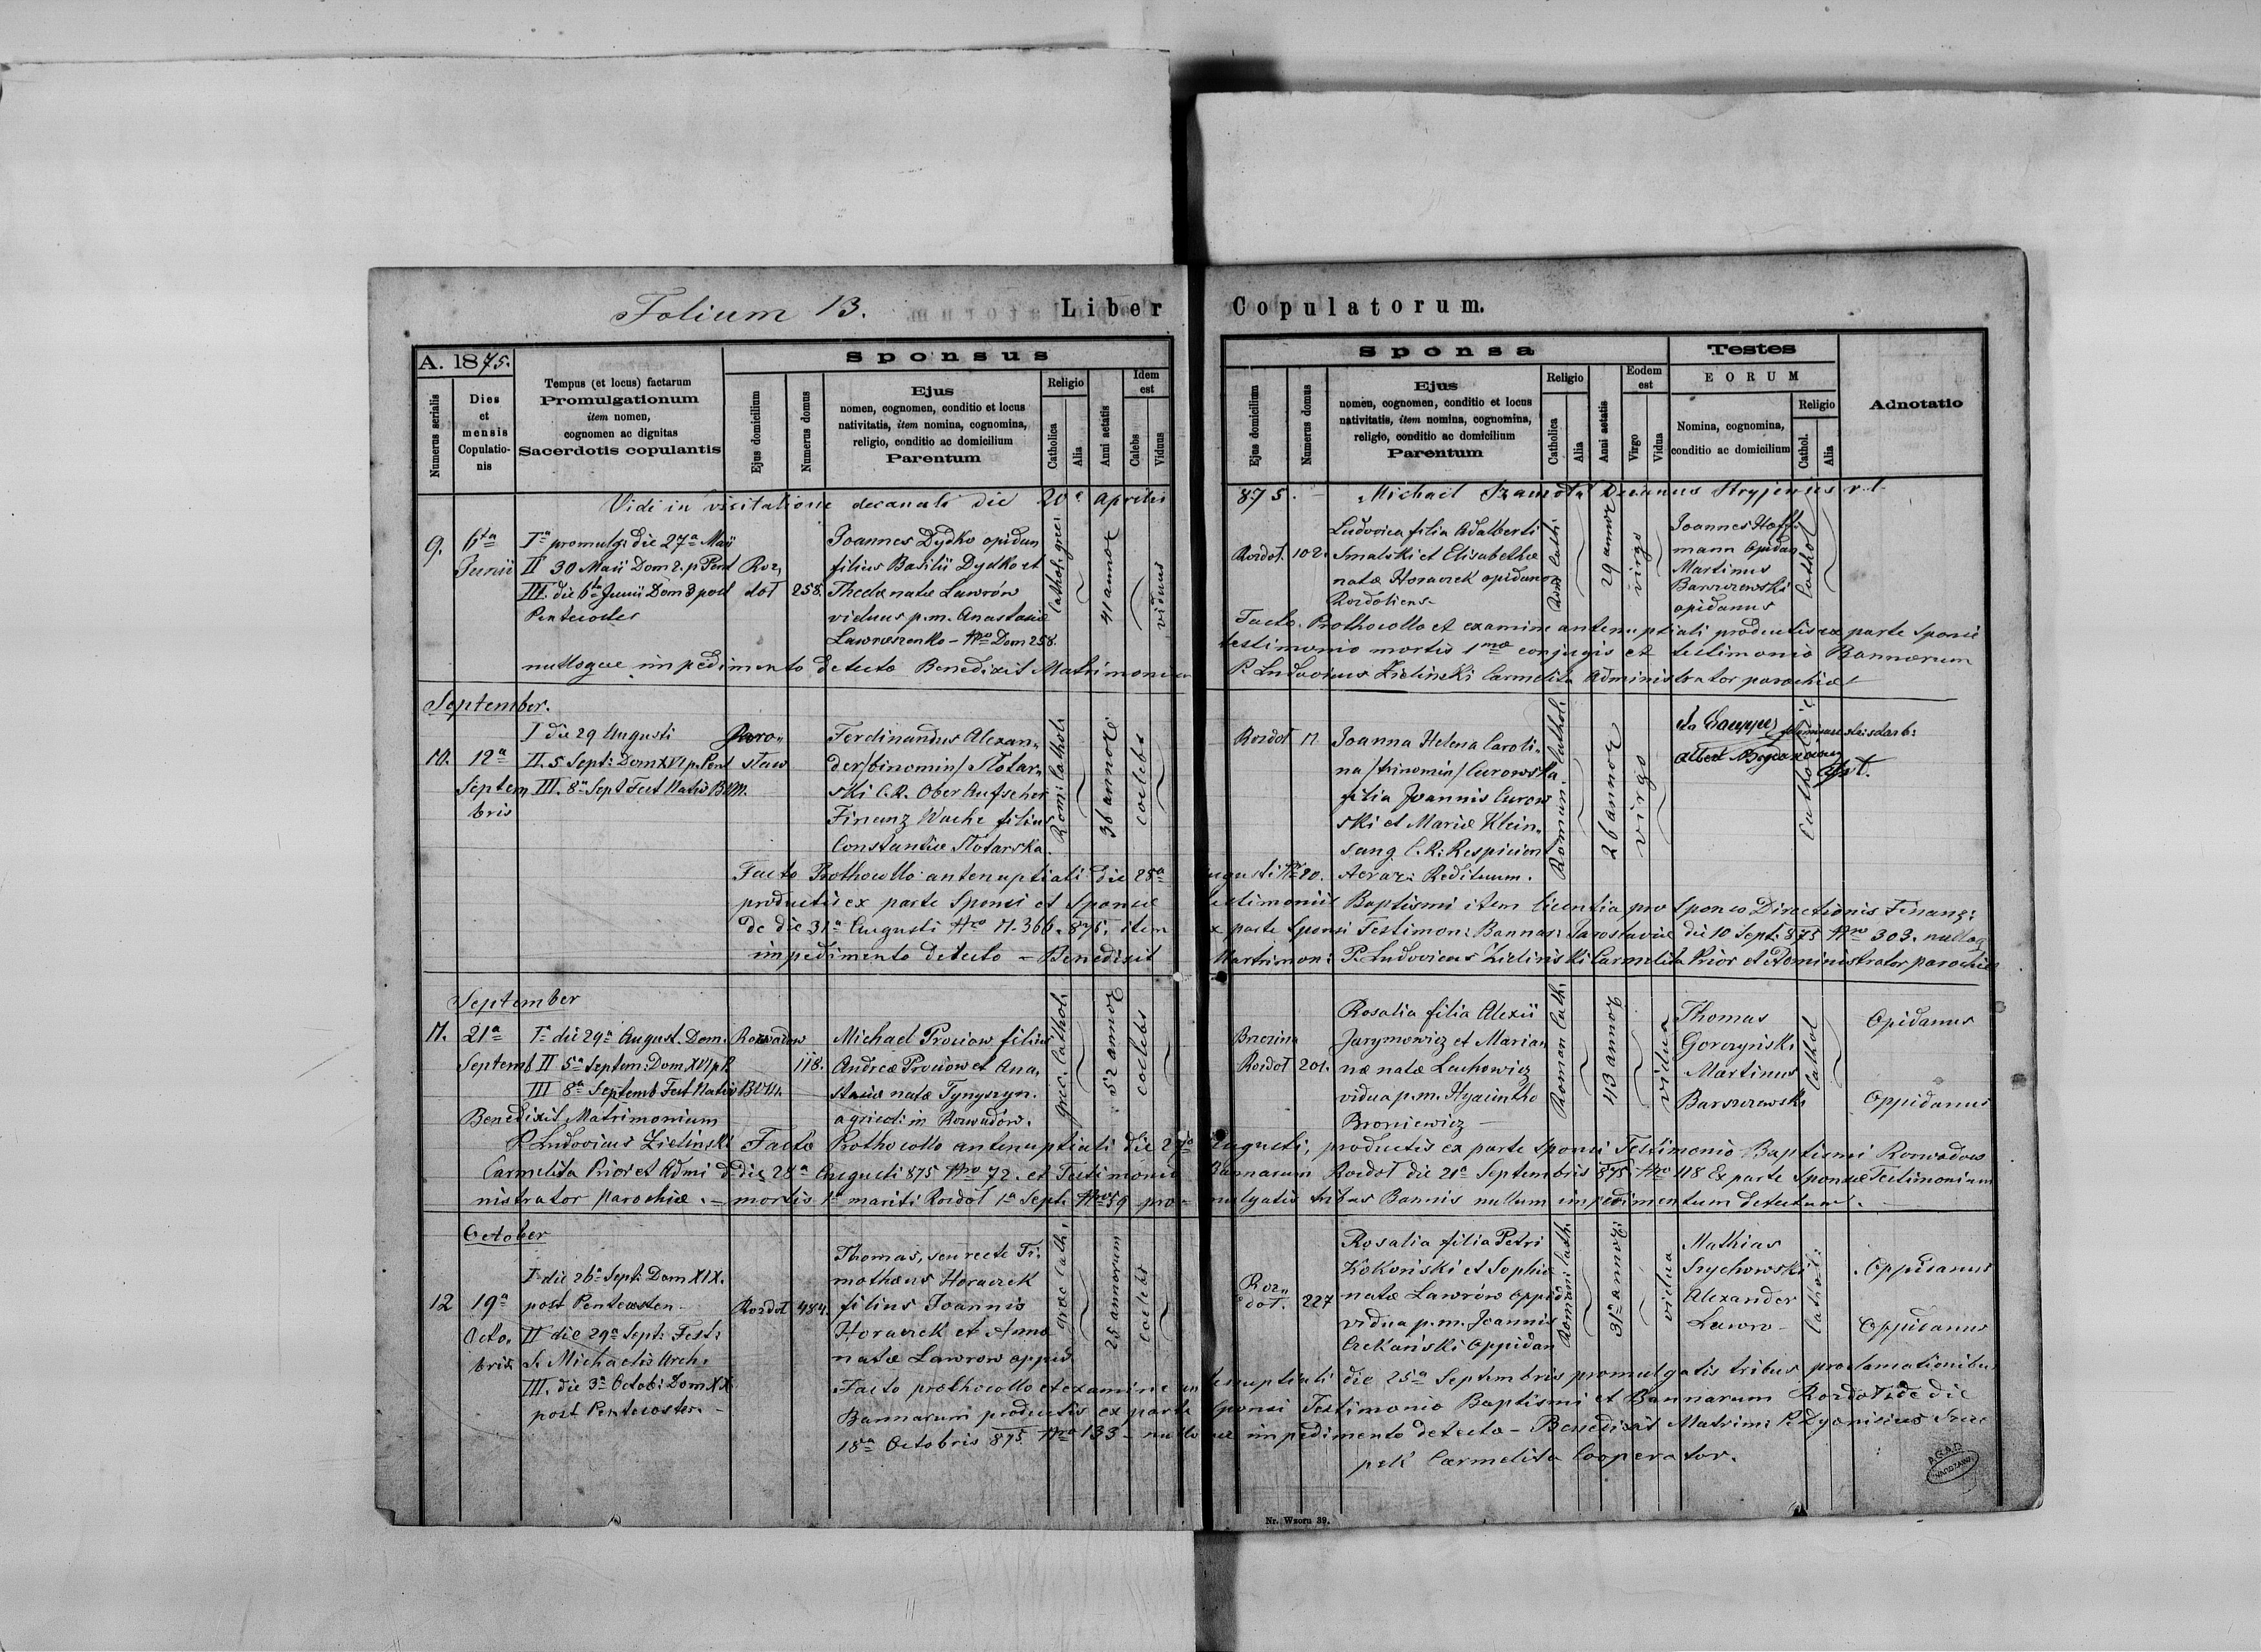 Folium 13.
Liber Copulatorum.
A. 1875.
Numerus serialis
Dies
et
mensis
Copulatio-
nis
Tempus (et locus) factarum
Promulgationum
item nomen,
cognomen ac dignitas
Sacerdotis copulantis
Sponsus
Ejus domicilium
Numerus domus
Ejus
nomen, cognomen, conditio et locus
nativitatis, item nomina, cognomina,
religio, conditio ac domicilium
Parentum
Religio
Catholica
Alia
Anni aetatis
Idem
est
Caelebs
Viduus
Sponsa
Ejus domicilium
Numerus domus
Ejus
nomen, cognomen, conditio et locus
nativitatis, item nomina, cognomina,
religio, conditio ac domicilium
Parentum
Religio
Catholica
Alia
Anni aetatis
Eodem
est
Virgo
Vidua
Testes
EORUM
Nomina, cognomina,
conditio ac domicilium
Religio
Cathol.
Alia
Adnotatio
Vidi in visitatione decanali die 20a Aprilis 875. Michael Decanus Stryjensis
9.
6ta
Junii
Ia promulg: die 27a Maii
II 30 Maii Dom 2. p Pent
III. die 6ta Junii Dom 3 post
Pentecostes
Roz,
doł
258.
Joannes Dydko opidan
filius Basilii Dydko et
Theclæ natæ Lawrów
viduus p.m. Anastasiæ
Lawreszenko - Nro Dom 258.
41 annor
viduus
Rozdoł. 102.
Ludovica filia Adalberti
Smalski et Elisabethæ
natæ Horaczek opidanor
Rozdoliens-
29 annor
virgo
Joannes Hoff-
mann Opidan
Martinus
Barszczewski
opidanus
Cathol
Facto Prothocollo et examine antenuptiali productis ex parte Sponsi
testimonio mortis 1mæ conjugis et testimonio Bannorum
nulloque impedimento detecto Benedixit Matrimonium P. Ludovicus Zieliński Carmelita Administrator parochiæ
September.
10.
12a
Septem
bris
I die 29 Augusti
II. 5 Sept: Dom XVI p. Pent
III. 8a Sept Fest Nativ BVM.
Jaro,,
staw
Ferdinandus Alexan,,
der /binomin/ Slotar,,
ski C.R. Ober Aufseher
Finanz Wache filius
Constantiæ Slotarska.
Rom: Cathol:
36 annor
coelebs
Rozdoł 11
Joanna Helena Caroli,,
na /trinomin/ Curowska
filia Joannis Curow
ski et Mariæ Klein,,
sang C.R: Respicient
Aerar: Redituum.
Roman: Cathol:
26 annor
virgo
Facto Prothocollo antenuptiali die 25a Augusti Nro 20.
productis ex parte Sponsi et Sponsæ testimoniis Baptismi item licentia pro Sponso Directionis Finanz:
de die 31a Augusti Nro 11.366. 875. item ex parte Sponsi Testimon: Bannar: Jaroslaviæ die 10 Sept: 875 Nro 303. nulloq
impedimento detecto - Benedixit Martrimon: P. Ludovicus Zieliński Carmelita Prior et Administrator parochiæ
September
11.
21a
Septemb
Ia die 29a August. Dom.
II 5a Septem: Dom XVI p P
III 8a Septemb Fest Nativ BVM.
Benedixit Matrimonium
P. Ludovicus Zieliński
Carmelita Prior et Admi
nistrator parochiæ.
Rozwadow
118.
Michael Prociow filius
Andreæ Prociow et Ana,
stasiæ natæ Tynyszyn.
agricol: in Rozwadów.
græc. Cathol.
52 annor
coelebs
Brzezina
Rozdoł 201.
Rosalia filia Alexii
Jarymowicz et Marian
næ natæ Lachowicz
vidua p.m. Hyacintho
Broniewicz -
Roman Cath.
43 annor
vidua
Thomas
Gorczyński
Martinus
Barszczewski
Cathol
Opidanus
Oppidanus
Facto Prothocollo antenuptiali die 27a Augusti, productis ex parte Sponsi Testimonio Baptismi Rozwadow
dd die 28a Augusti 875 Nro 72. et Testimonio Bannarum Rozdoł die 21a Septembris 875 Nro 118 Ex parte Sponsæ Testimonium
mortis 1i mariti Rozdoł 1a Sept: Nro 59 promulgatis tribus Bannis nullum impedimentum detectum.
October
12
19a
Octo.
bris
I die 26a Sept: Dom XIX.
post Pentecosten
II die 29a Sept: Fest:
S. Michaelis Arch:
III. die 3a Octob: Dom XX
post Pentecosten -
Rozdoł 484.
Thomas, seu recte Ti:
motheus Horaczek
filius Joannis
Horaczek et Annæ
natæ Lawrow oppid
græc Cath.
25 annorum
coelebs
Roz,,
doł. 227
Rosalia filia Petri
Kokoński et Sophiæ
natæ Lawrów oppid
vidua p.m. Joannis
Czekański Oppidan
Romani Cath.
31a annor:
vidua
Mathias
Szychowski
Alexander
Lawro-
Cathol:
Oppidanus
Oppidanus
Facto prothocollo et examine antenuptiali die 25a Septembris promulgatis tribus proclamationibus
Bannarum productis ex parte Sponsi Testimonio Baptismi et Bannarum Rozdoł de die
18a Octobris 875 Nro 133 - nulloque impedimento detecto - Benedixit Matrim: P. Dyonisius Szcze
pek Carmelita Cooperator.
Nr. Wzoru 39.